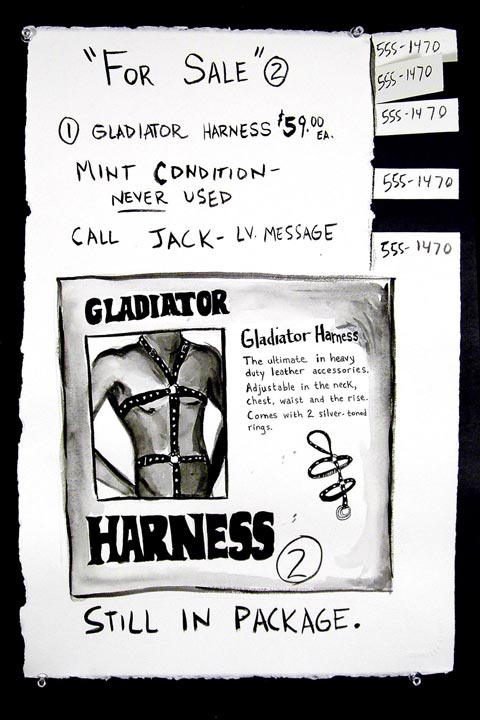 "FOR SALE" ②
① GLADIATOR HARNESS $59.00 EA.
MINT CONDITION-
NEVER USED
CALL JACK- LV. MESSAGE
555-1470
555-1470
555-1470
555-1470
555-1470
GLADIATOR
Gladiator Harness
The ultimate in heavy
duty leather accessories.
Adjustable in the neck,
chest, waist and the rise.
Comes with 2 silver-toned
rings.
HARNESS
②
STILL IN PACKAGE.